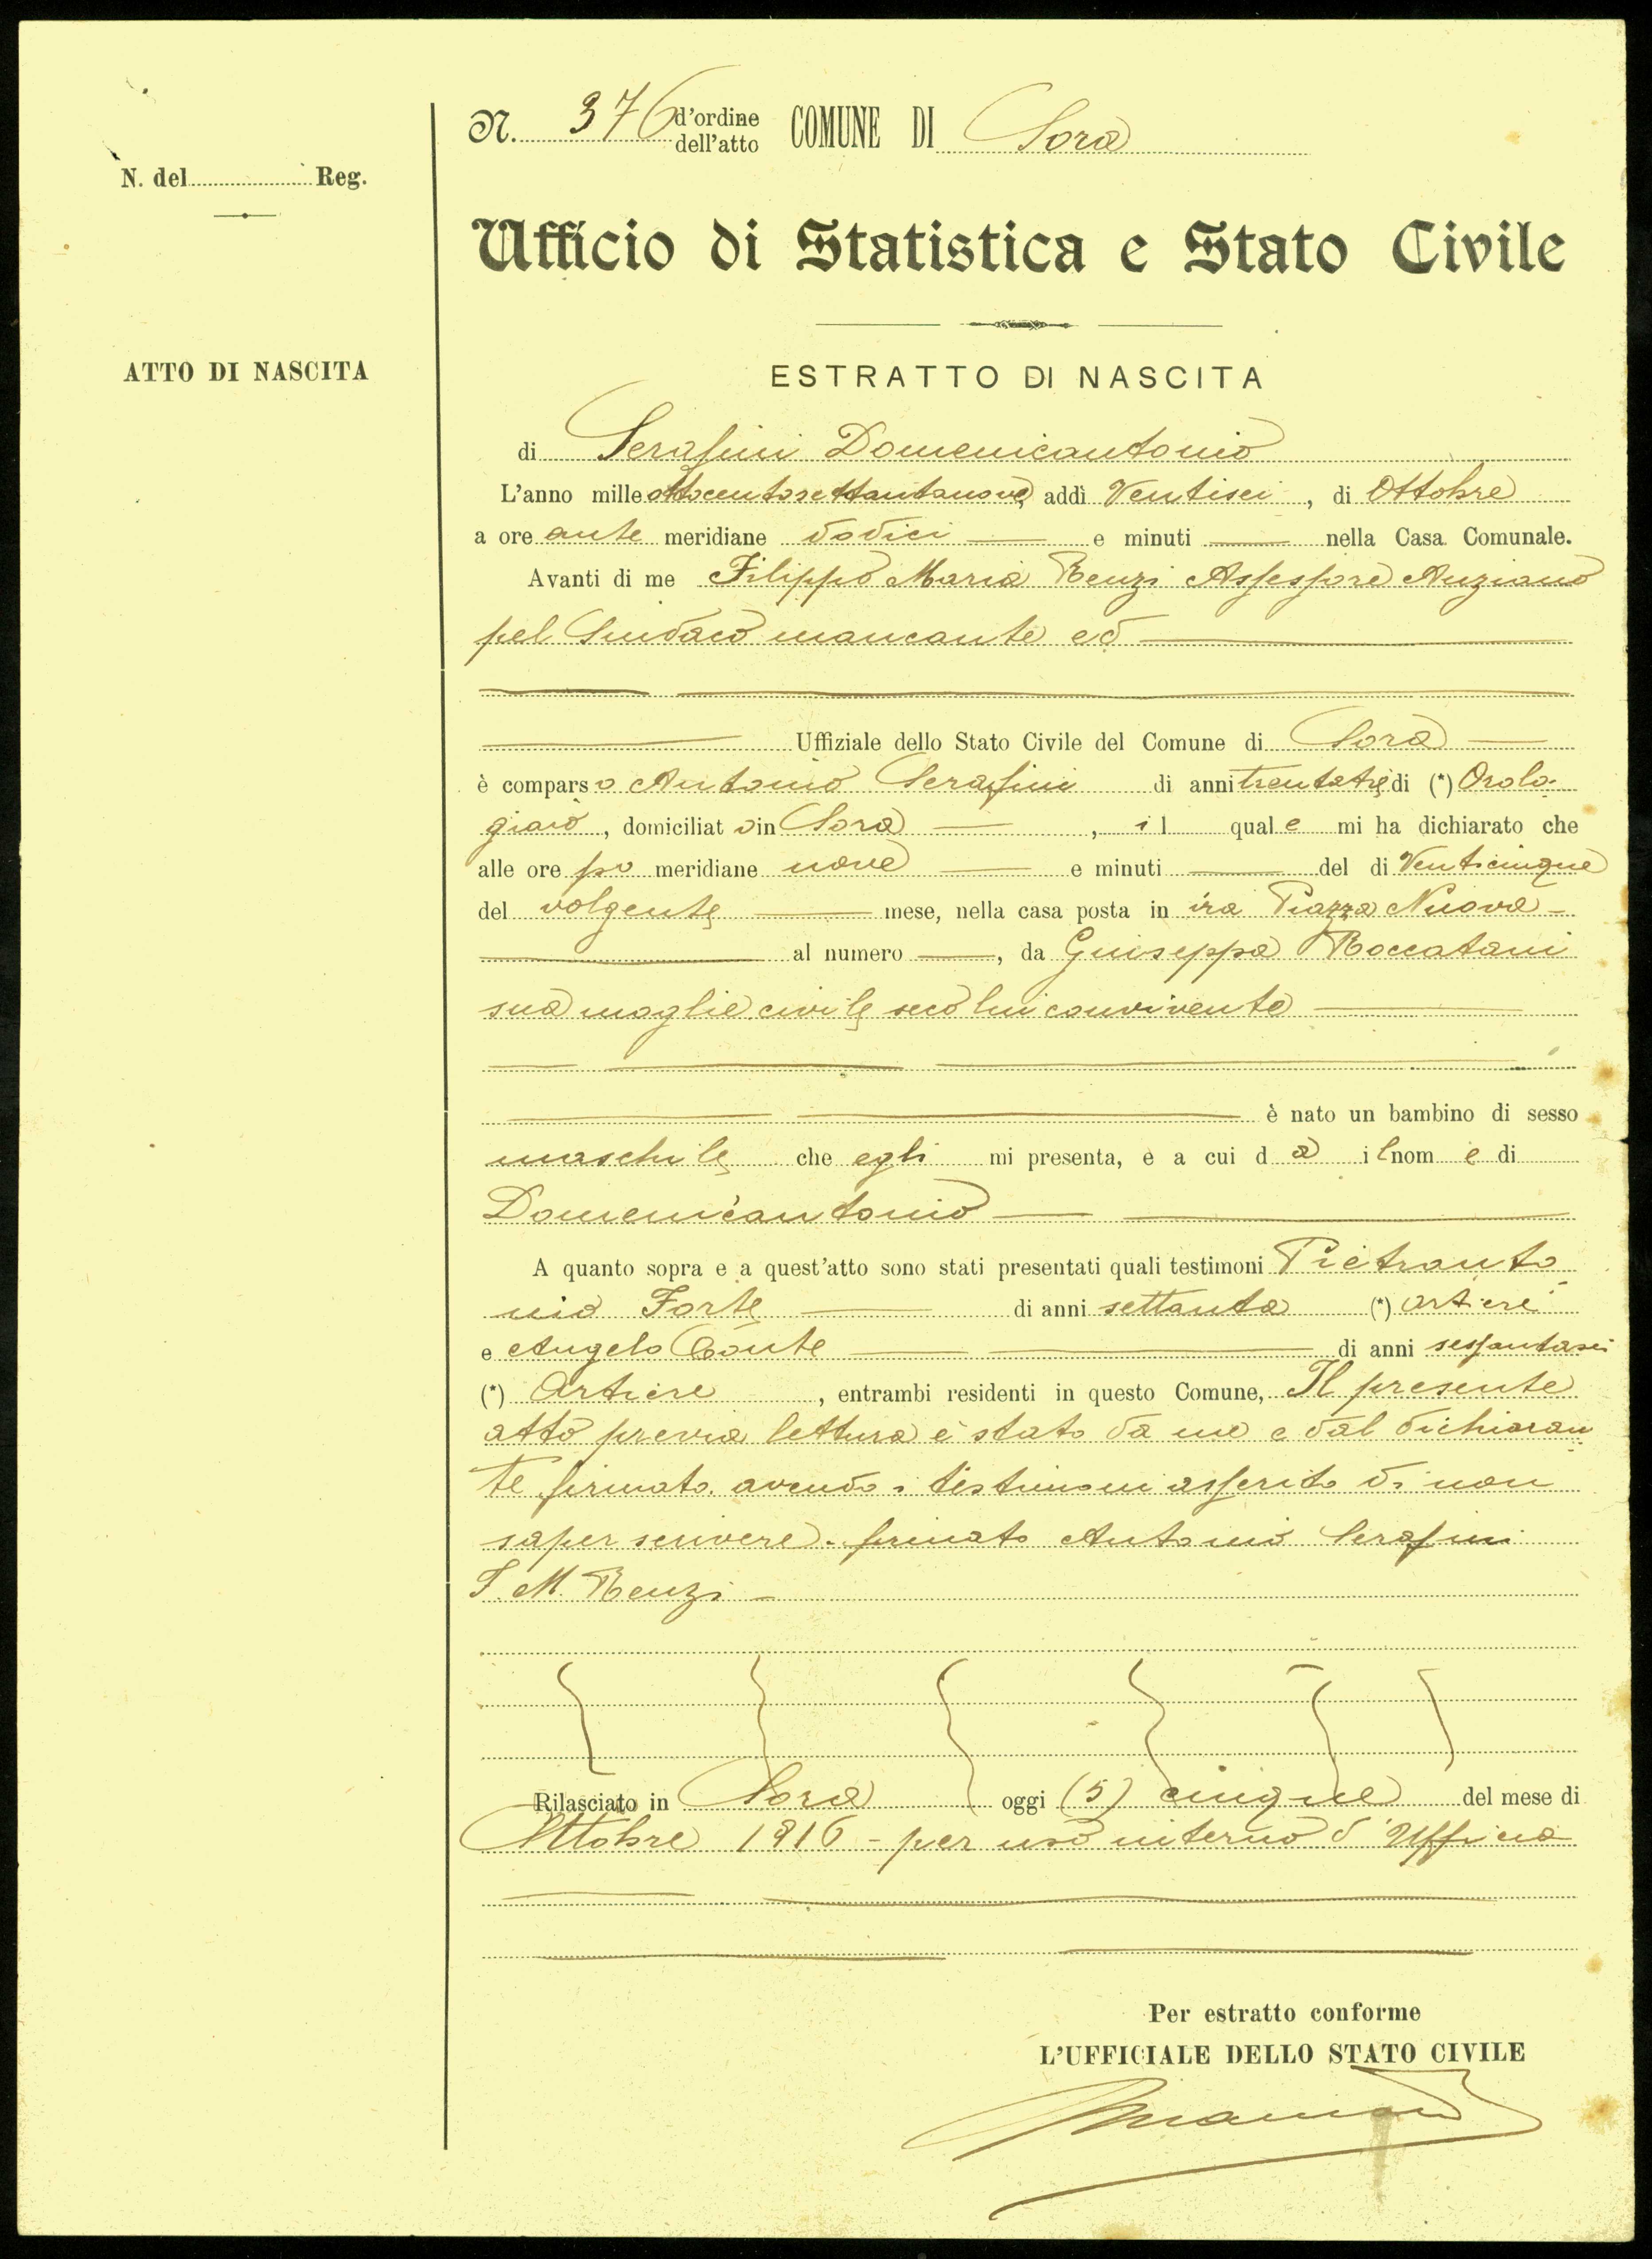 N. 376 d'ordine dell'atto COMUNE DI Sora
N. del Reg.
Ufficio di Statistica e Stato Civile
ATTO DI NASCITA
ESTRATTO DI NASCITA
di Serafini Domenicantonio
L'anno mille ottocentosettantanove, addì Ventisei, di Ottobre
a ore ante meridiane dodici — e minuti — nella Casa Comunale.
Avanti di me Filippo Maria Renzi Assessore Anziano
pel Sindaco mancante ed
Uffiziale dello Stato Civile del Comune di Sora —
è comparso Antonio Serafini di anni trentatre di (*) Orolo-
giaio, domiciliato in Sora —, il quale mi ha dichiarato che
alle ore po meridiane nove — e minuti — del dì Venticinque
del volgente — mese, nella casa posta in via Piazza Nuova —
al numero —, da Giuseppa Roccatani
sua moglie civile seco lui convivente —
è nato un bambino di sesso
maschile che egli mi presenta, e a cui dà il nome di
Domenicantonio —
A quanto sopra e a quest'atto sono stati presentati quali testimoni Pietranto
nio Forte — di anni settanta (*) artiere
e Angelo Conte — di anni sessantasei
(*) Artiere, entrambi residenti in questo Comune, Il presente
atto previa lettura è stato da me e dal dichiaran
te firmato avendo i testimoni asserito di non
saper scrivere. firmato Antonio Serafini
F. M. Renzi —
Rilasciato in Sora oggi (5) cinque del mese di
Ottobre 1916 - per uso interno d'Ufficio
Per estratto conforme
L'UFFICIALE DELLO STATO CIVILE